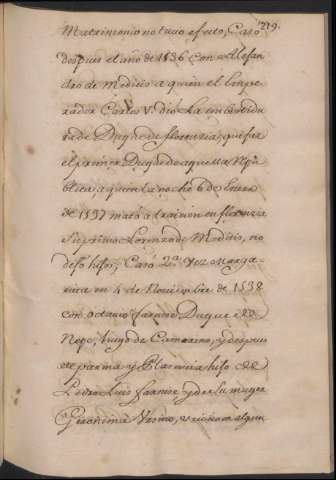 219.
Matrimonio no tuvo efecto, Casò
despues el año de 1536 con Alesan
dro de Medicis a quien el Empe
rador Carlos V. diò la imbestidu
ra de Duque de florenzia, que fue
el primer Duque de aquella Repu
blica, a quien la noche 6 de Enero
de 1537 matò a traicion en florenza
Su primo Lorenzo de Medicis, no
dejò hijos, Casò 2.ª vez Marga
rita en 4 de Noviembre de 1538
con octavio farnese, Duque de
Nepe, hijo de Camarino, y despues
de parma y Plasencia hijo de
Pedro Luis farnese y de su muger
Geronima Vrsino, vivieron algun